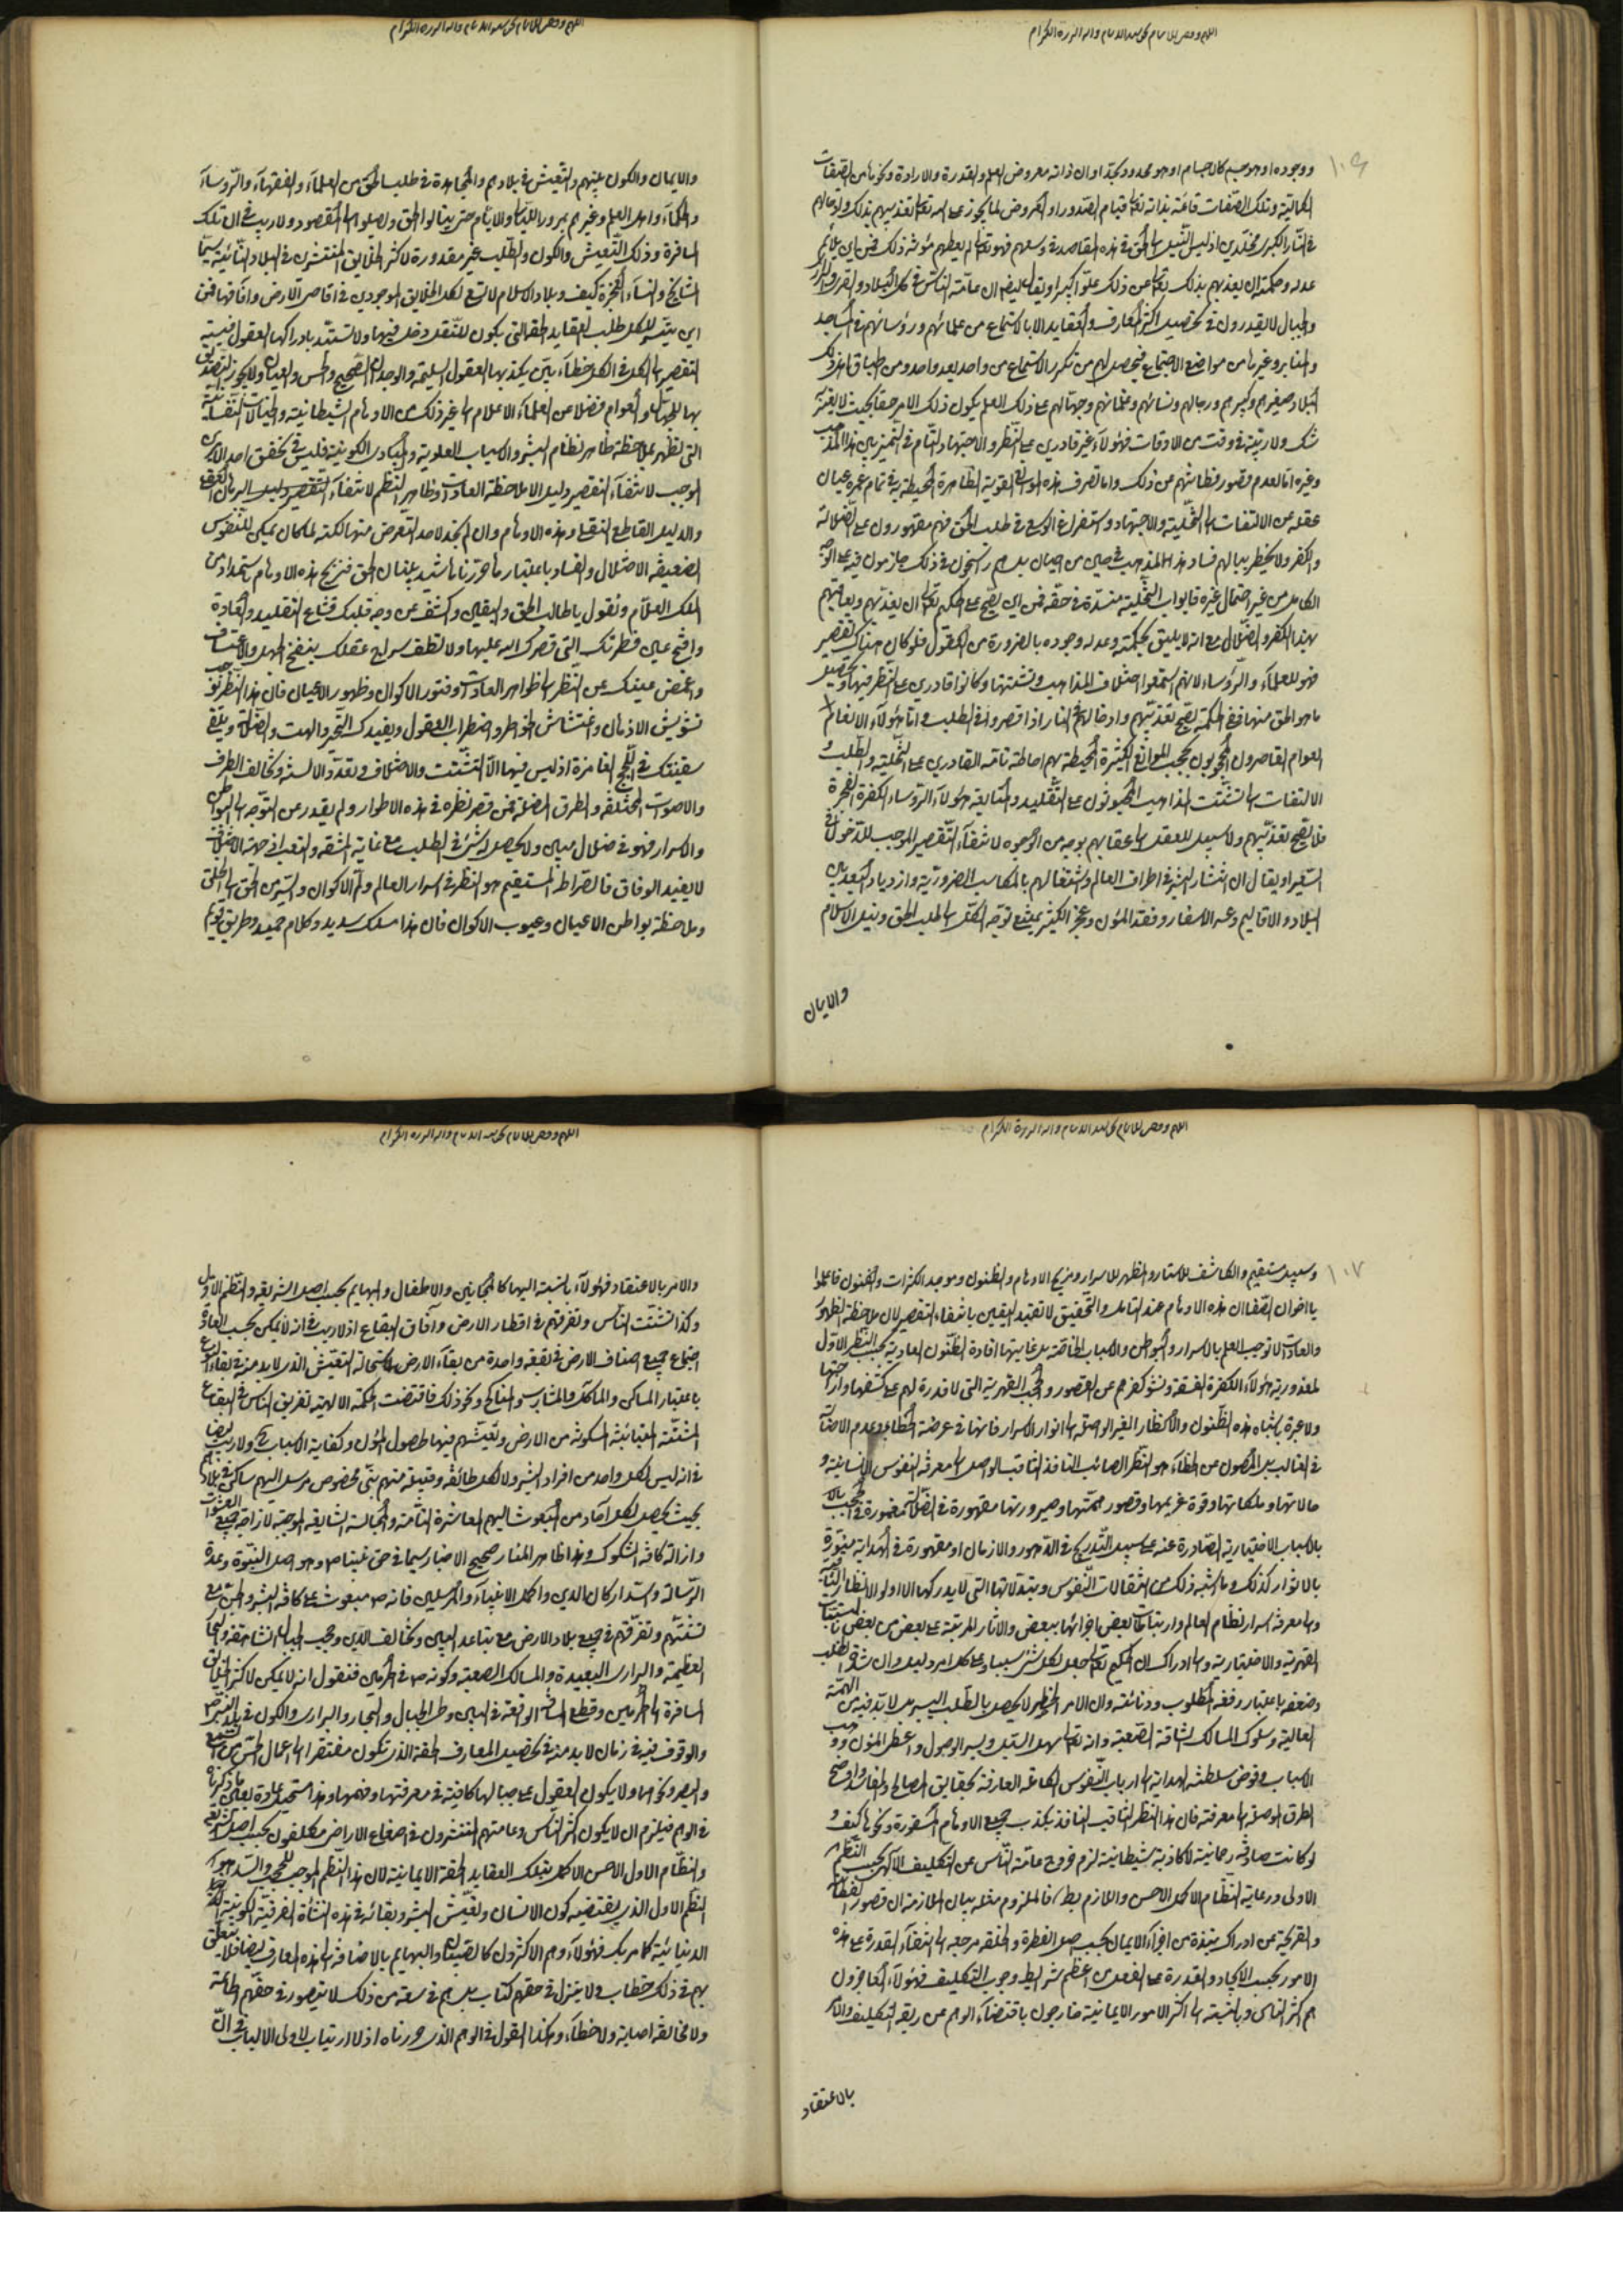 اللهم وفقني للاتمام بحق سيد الانام واله البررة الكرام
١٠٦
ووجوده او هو جسم كالاجسام او هو محدود بحد او ان ذاته معروض العلم والقدرة والارادة ونحوها من الصفات
الكمالية وتلك الصفات قائمة بذاته تعالى قيام الصدور او العروض لما يجوز على الله تعالى تعذيبهم بذلك وادخالهم
في النار الكبرى مخلدين اذ ليس النيل الى الحق في هذه المقاصد في وسعهم فهو تعالى لم يعطهم مؤنة ذلك فمن اين يلائم
عدله وحكمته ان يعذبهم بذلك تعالى عن ذلك علوا كبيرا ويقال ايضا ان عامة الناس في كل البلاد والقرى والبرر
والجبال لا يقدرون في تحصيل اكثر المعارف والعقايد الا بالاستماع من علمائهم ورؤسائهم في المساجد
والمنابر وغيرها من مواضع الاجتماع فيحصل لهم من تكرر الاستماع من واحد بعد واحد ومن اطباق اهل ذلك
البلاد صغيرهم وكبيرهم ورجالهم ونسائهم وعلمائهم وجهالهم على ذلك العلم بكون ذلك الامر حقا بحيث لا يعتريه
شك ولا ريبة في وقت من الاوقات فهؤلاء غير قادرين على النظر والاجتهاد التام في التميز بين هذا المذهب
وغيره اما لعدم قصور فطانتهم من ذلك واما تصرف هذه الموانع القوية الظاهرة المحيطة به في تمام عمره عيان
عقله عن الالتفات الى التخلية والاجتهاد واستفراغ الوسع في طلب الحق فهم مقهورون على الضلالة
والكفر ولا يخطر ببالهم فساد هذا المذهب في حين من احيان بل هم راسخون في ذلك جازمون فيه على الوجه
الكامل من غير احتمال غيره فابواب التخلية منسدة في حقه فمن اين يقبح على الحكيم تعالى ان يعذبهم ويعاقبهم
بهذا الكفر والضلال مع انه لا يليق بحكمته وعدله وجوده بالضرورة من العقول فلو كان هناك تقصير
فهو للعلماء والرؤساء لانهم استمعوا اختلاف المذاهب وتشتتها وكانوا قادرين على النظر فيها وتحصيل
ما هو الحق منها ففي الحكمة يصح تعذيبهم وادخالهم في النار اذا قصروا في الطلب واما هؤلاء الانعام
العوام القاصرون المحجوبون بحجب الموانع الكثيرة المحيطة بهم احاطة تامة القادرين على التخلية والطلب و
الالتفات الى تشتت المذاهب المجبولون على التقليد والمتابعة لهؤلاء الرؤساء الكفرة الفجرة
فلا يصح تعذيبهم ولا سبيل للعقل الى عقابهم بوجه من الوجوه لانتفاء التقصير الموجب للدخول في
السعير او يقال ان انتشار البشر في اطراف العالم واشتغالهم بالمكاسب الضرورية وازدياد البعد بين
البلاد والاقاليم وعسر الاسفار وفقد المؤن وعجز الكثير يمنع توجه الكل الى طلب الحق ونيل الاسلام
والايمان
اللهم وفقني للاتمام بحق سيد الانام واله البررة الكرام
والايمان والكون بينهم والتعيش في بلادهم والمجاهدة في طلب الحق من العلماء والفقهاء والرؤساء
والحكماء واهل العلم وغيرهم بمرور الليالي والايام حتى ينالوا الحق ويصلوا الى المقصود ولا ريب في ان تلك
المسافرة وذلك التعيش والكون والطلب غير مقدورة لاكثر الخلايق المنتشرين في البلاد النائية سيما
المشايخ والنساء العجزة كيف وبلاد الاسلام لا تسع لكل الخلايق الموجودين في اقاصي الارض وآفاقها فمن
اين يتيسر للكل طلب العقايد الحقة التي يكون للنقل دخل فيها ولا تستبد بادراكها العقول فنسبة
التقصير الى الكل في الكل خطاء بين يكذبها العقول السليمة والوجدان الصحيح والحس والعيان ولا يجوز التصديق
بها للجهال والعوام فضلا عن العلماء الاعلام الى غير ذلك من الاوهام الشيطانية والخيالات النفسانية
التي تظهر بملاحظة ظاهر نظام البشر والاسباب العلوية والمبادي الكونية فليس في تحقق احد الامرين
الموجب لانتفاء التقصير دليل الا ملاحظة العادات وظاهر النظم لانتفاء التقصير دليل البرهان العقلي
والدليل القاطع النقلي وهذه الاوهام وان لم يجد لاحد التعرض منها لكنه لما كان يمكن للنفوس
الضعيفة الاختلال والفساد باعتبارها حررنا ما شيد بنيان الحق فنزيح هذه الاوهام باستمداد من
الملك العلام ونقول يا طالب الحق واليقين واكشف عن وجه قلبك قناع التقليد والعادة
وافتح عين فطرتك التي فطرك الله عليها ولا تطف سراج عقلك بنفخ الجهل والاعتساف
واغمض عينك عن النظر الى ظواهر العادات وفتور الاكوان وظهور الاعيان فان هذا النظر يوجب
تشويش الاذهان واغتشاش الخواطر واضطراب العقول ويفيدك التحير والهت والضلالة ويلقي
سفينتك في اللجج الغامرة اذ ليس فيها الا التشتت والاختلاف وتعدد الالسنة وتخالف الطرف
والاصوات المختلفة والطرق المضلة فمن قصر نظره في هذه الاطوار ولم يقدر عن التوجه الى البواطن
والاسرار فهو في ضلال مبين ولا يحصل له شيء في الطلب مع غاية المشقة والتعب اذ جهة الاختلاف
لا يفيد الوفاق فالصراط المستقيم هو النظر في اسرار العالم ولم الاكوان والسير من الحق الى الخلق
وملاحظة بواطن الاعيان وعيوب الاكوان فان هذا مسلك سديد وكلام حميد وطريق قويم
اللهم وفقني للاتمام بحق سيد الانام واله البررة الكرام
١٠٧
وسبيل مستقيم والكاشف للاستار والمظهر للاسرار ومزيح الاوهام والظنون وموجد الكثرات والفنون فاعلموا
يا اخوان الصفا ان هذه الاوهام عند التامل والتحقيق لا تفيد اليقين بانتفاء التقصير لان ملاحظة الظهور
والعادات لا توجب العلم بالاسرار والبواطن والاسباب الخاصة بل غايتها افادة الظنون العادية بحسب النظر الاول
لمعذورية هؤلاء الكفرة الفسقة ونشو كفرهم عن القصور والحجب القهرية التي لا قدرة لهم على كشفها وازاحتها
ولا عبرة باشباه هذه الظنون والانظار الغير الواصلة الى انوار الاسرار فانها في عرضة الخطا وعدم الاصابة
في الغالب بل المصون عن الخطاء هو النظر الصائب النافذ الثاقب الواصل الى معرفة النفوس الانسانية و
حالاتها وملكاتها وقوة عزيمها وقصور همتها وصيرورتها مقهورة في الضلالة مغمورة في الحجب
بالاسباب الاختيارية الصادرة عنه على سبيل التدريج في الدهور والازمان او مقهورة في الهداية منورة
بالانوار كذلك وما اشبه ذلك من انتقالات النفوس وتبدلاتها التي لا يدركها الا اولو الانظار الثاقبة
والى معرفة اسرار نظام العالم وارتباطات بعض اجزائها ببعض والاثار المترتبة على بعض من بعض
القهرية والاختيارية والى ادراك ان الحكيم تعالى جعل لكل شيء سببا وعلى كل امر دليلا وان شاق الطلب
وضعفه باعتبار رفعة المطلوب ودنائته وان الامر الخطير لا يحصل بالطلب اليسير بل لا بد فيه من الهمة
العالية وسلوك المسالك الشاقة الصعبة وانه تعالى سهل السبيل ويسر الوصول واعطى المؤن ووهب
الاسباب وفوض سلطنة الهداية الى ارباب النفوس الكاملة العارفة بحقايق المصالح والمفاسد واوضح
الطرق الموصلة الى معرفته فان هذا النظر الثاقب النافذ يكذب جميع الاوهام المسفورة ونحوها كيف و
لو كانت صادقة رحمانية لا كاذبة شيطانية لزم خروج عامة الناس عن التكليف الالهي بحسب النظم
الاولى ورعاية النظام الاكمل الاحسن واللازم بط فالملزوم مثله بيان الملازمة ان قصور الفطانة
والقريحة عن ادراك نبذة من اجزاء الايمان بحسب اصل الفطرة والخلقة مرجعه الى انتفاء القدرة على هذه
الامور بحسب الايجاد والقدرة على الفعل من اعظم شرايط وجوب التكليف فهؤلاء العاجزون
هم اكثر الناس وبالنسبة الى اكثر الامور الايمانية خارجون باقتضاء الوهم من ربقة التكليف والامر
بالاعتقاد
اللهم وفقني للاتمام بحق سيد الانام واله البررة الكرام
والامر بالاعتقاد فهؤلاء بالنسبة اليها كالمجانين والاطفال والبهايم بحسب اصل الشريعة والنظم الاول
وكذا تشتت الناس وتفرقهم في اقطار الارض وآفاق البقاع اذ لا ريب في انه لا يمكن بحسب العادة
اجتماع جميع اصناف الارض في بقعة واحدة من بقاء الارض لاستحالة التعيش الذي لا بد منه في بقاء النوع
باعتبار المساكن والماكل والمشارب والمناكح ونحو ذلك فاقتضت الحكمة الالهية تفريق الناس في البقاع
المشتتة المتباينة المسكونة من الارض وتعيشهم فيها لحصول المؤن وكفاية الاسباب ولا ريب ايضا
في انه ليس لكل واحد من افراد البشر ولا لكل طائفة وقبيلة منهم نبي مخصوص مرسل اليهم ساكن في بلادهم
بحيث يحصل لكل آحاد من المبعوث اليهم المعاشرة التامة والمجالسة الشايعة الموجبة لازاحة جميع الشبهات
وازالة كافة الشكوك وهذا ظاهر المنار صحيح الاخبار سيما في حق نبينا ص وهو اصل النبوة وعمدة
الرسالة واستدار كان الدين واكمل الانبياء والمرسلين فانه ص مبعوث على كافة البشر والجن مع
تشتتهم وتفرقهم في جميع بلاد الارض مع تباعد البين وتخالف الدين وحجب الجبال الشاهقة والبحار
العظيمة والبراري البعيدة والمسالك الصعبة وكونه ص في الحرمين فنقول انه لا يمكن لاكثر الخلايق
المسافرة الى الحرمين وقطع المسافة الواقعة في البين وطي الجبال والبحار والبراري والكون في بلد النبي ص
والوقوف فيه في زمان لا بد منه في تحصيل المعارف الحقة الذي تكون مفتقرا الى اعمال الحس من السمع
والبصر ونحوها ولا يكون العقول على حبالها كافية في معرفتها وفهمها وهذا مستحيل عادة فعلى ما ذكرناه
في الوهم فيلزم ان لا يكون اكثر الناس وعامتهم المنتشرون في اصقاع الاراضي مكلفون بحسب اصل الشريعة
والنظام الاول الاحسن الاكمل بتلك العقايد الحقة الايمانية لان هذا النظم الموجب للحجب والسد هو
النظم الاول الذي يقتضيه كون الانسان وتعيش البشر وبقائه في هذه النشأة العرفية الكونية
الدنيائية كما مر بك فهؤلاء وهم الاكثرون كالصبيان والبهايم بالاضافة الى هذه المعارف ايضا فلا يتعلق
بهم في ذلك خطاب ولا ينزل في حقهم كتاب بل هم في سعة من ذلك لا يتصور في حقهم اطاعة
ولا مخالفة اصابة ولا خطاء وهكذا القول في الوهم الذي حررناه اذ لا ارتياب لاولي الالباب في ان